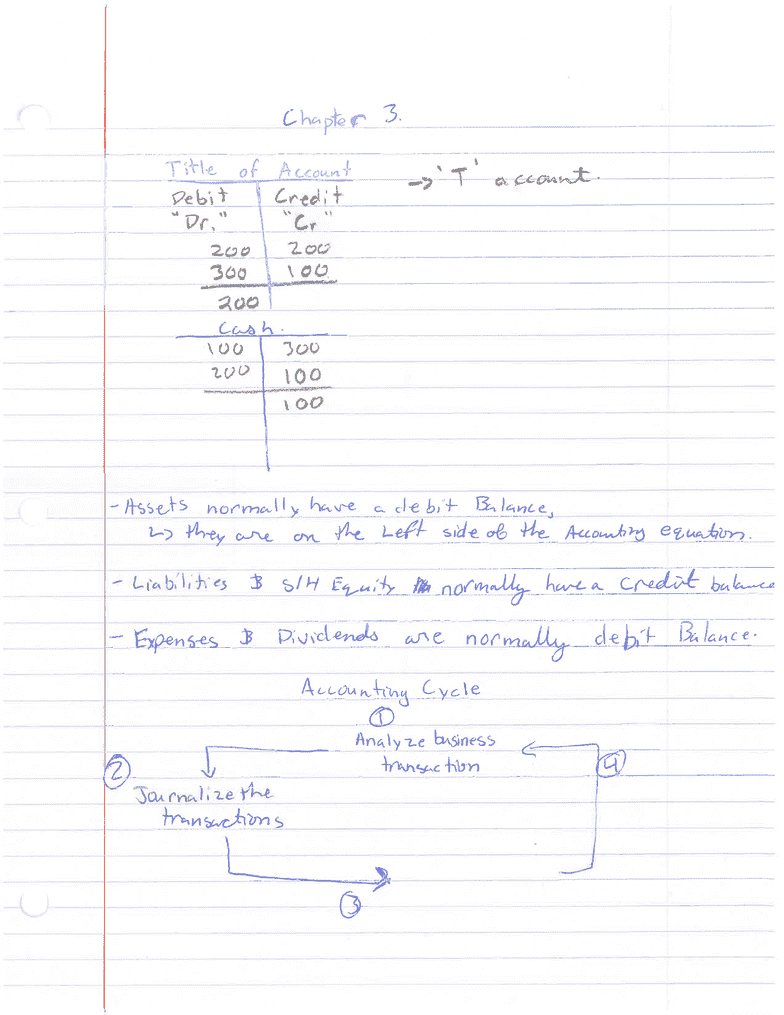 Chapter 3.
Title of Account
→ 'T' account.
Debit Credit
"Dr." "Cr"
200 200
300 100
200
Cash.
100 300
200 100
100
- Assets normally have a debit Balance,
↳ they are on the Left side of the Accounting equation.
- Liabilities & S/H Equity normally have a Credit balance
- Expenses & Dividends are normally debit Balance.
Accounting Cycle
①
Analyze business
transaction
②
④
Journalize the
transactions
③